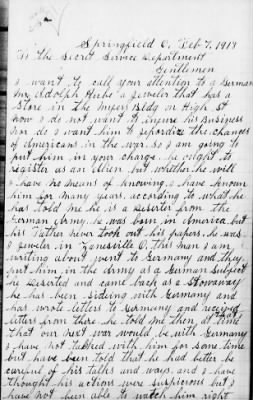 Springfield O, Feb 7, 1918
To the Secret Service Department
Gentlemen
I want to call your attention to a German
Mr Adolph a Jeweler that has a
Store in the Bldg on High St
now I do not want to injure his Business
nor do I want him to jepordize the chances
of Americans in the war. So I am going to
put him in your charge. he ought to
register as an Alien but whether he will
I have no means of knowing. I have known
him for many years, according to what he
has told me he is a deserter from the
German Army. he was born in America, but
his Father never took out his papers, he was
a jeweler in Zanesville O. this man I am
writing about went to Germany and they
put him in the army as a German Subject
he Deserted and came back as a Stowaway
he has been sideing with Germany and
has wrote letters to Germany and received
letters from there he told me then at that time
that our next war would be with Germany
I have not talked with him for some time
but have been told that he had better be
careful of his talks and ways, and I have
thought his actions were suspicious but I
have not been able to watch him right